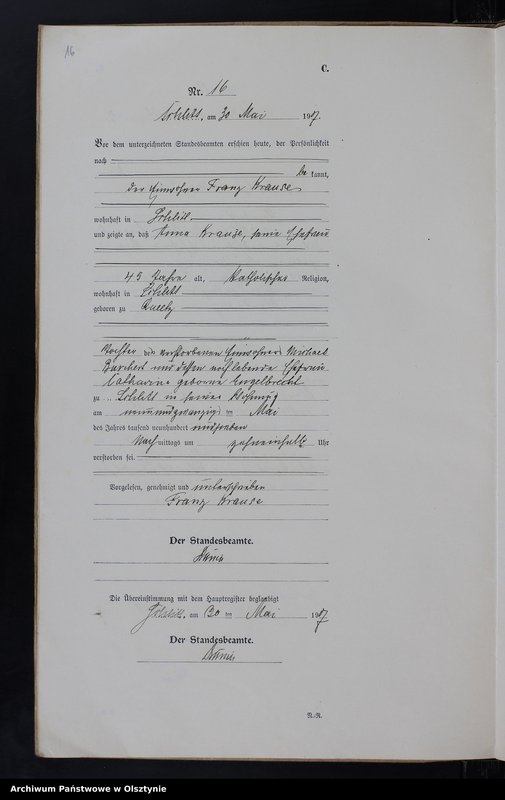 16
C.
Nr. 16
am 30 Mai 1907.
Vor dem unterzeichneten Standesbeamten erschien heute, der Persönlichkeit
nach
be kannt,
der Einwohner Franz Krause
wohnhaft in
und zeigte an, daß Anna Krause, seine Ehefrau
45 Jahre alt, katholischer Religion,
wohnhaft in
geboren zu Queetz
Tochter des verstorbenen Einwohner Michael
und dessen noch lebende Ehefrau
Catharina geborene Engelbrecht
zu in seiner Wohnung
am neunundzwanzigsten Mai
des Jahres tausend neunhundert und sieben
Nach mittags um zehneinhalb Uhr
verstorben sei.
Vorgelesen, genehmigt und unterschrieben
Franz Krause
Der Standesbeamte.
Die Übereinstimmung mit dem Hauptregister beglaubigt
am 30 ten Mai 1907
Der Standesbeamte.
N.-R.
Archiwum Państwowe w Olsztynie